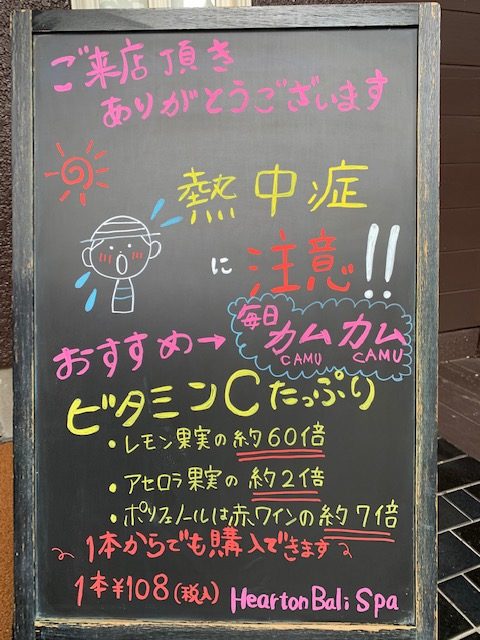 ご来店頂き
ありがとうございます
熱中症
に注意!!
おすすめ→毎日カムカム
CAMU CAMU
ビタミンCたっぷり
・レモン果実の約60倍
・アセロラ果実の約2倍
・ポリフェノールは赤ワインの約7倍
1本からでも購入できます
1本¥108(税込) Hearton Bali Spa